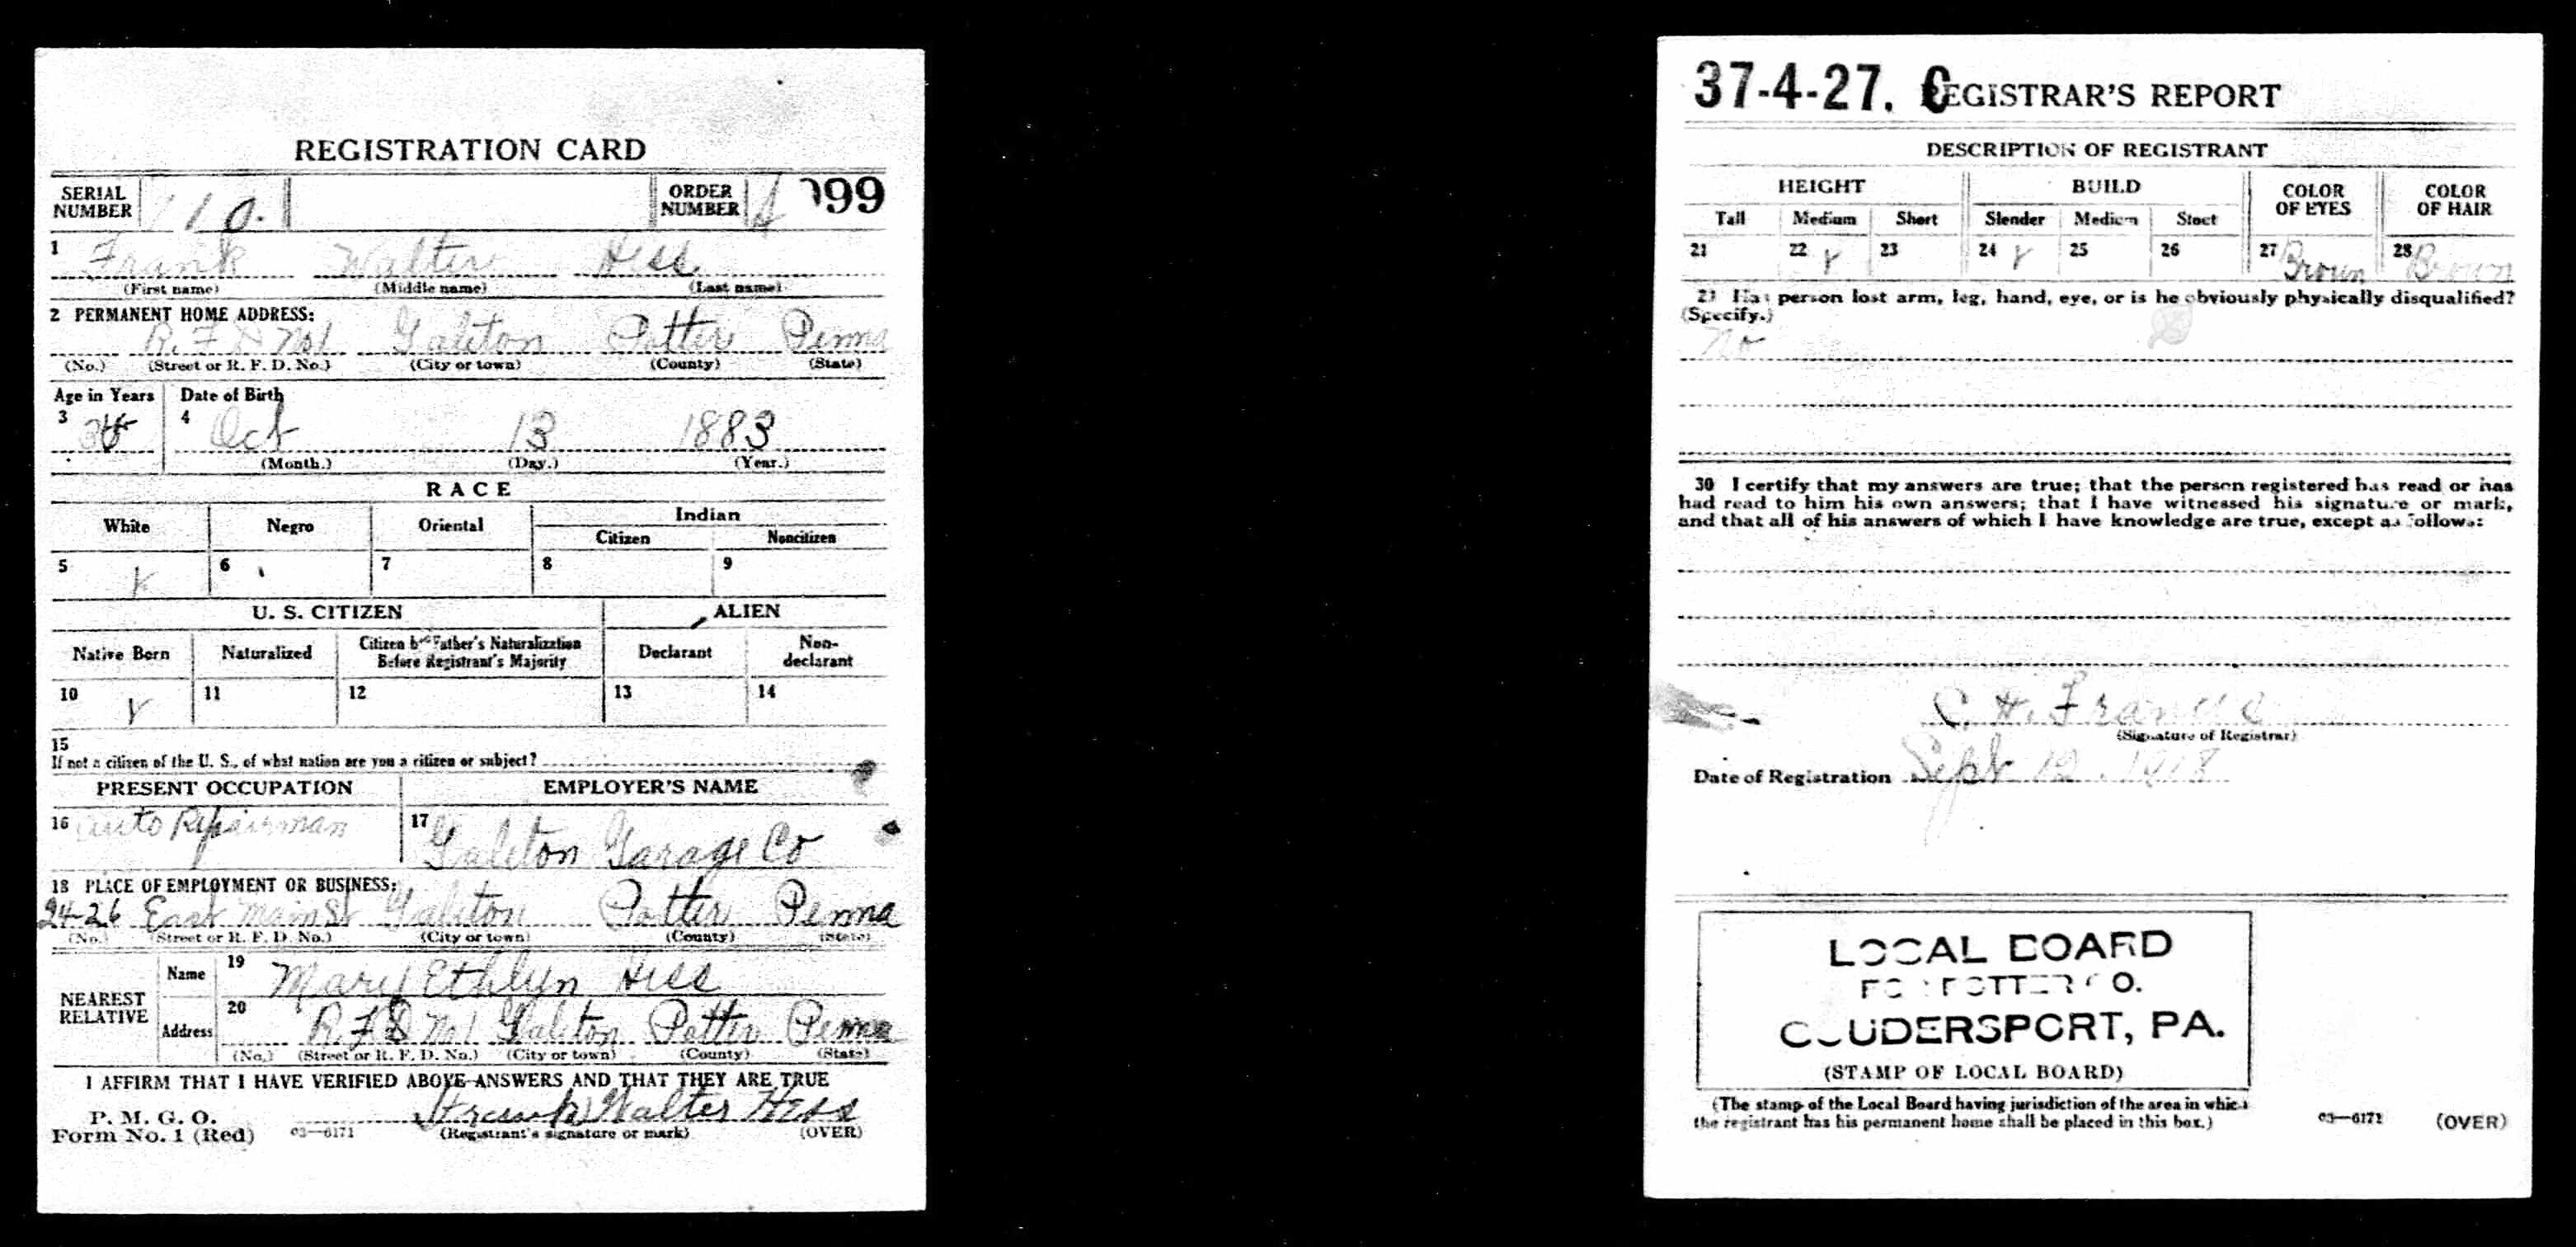 REGISTRATION CARD
SERIAL NUMBER 10. ORDER NUMBER 99
1 Frank Walter Hess
(First name) (Middle name) (Last name)
2 PERMANENT HOME ADDRESS:
R. F D No1 Galeton Potter Penna
(No.) (Street or R. F. D. No.) (City or town) (County) (State)
Age in Years Date of Birth
3 4 Oct 13 1883
(Month.) (Day.) (Year.)
RACE
White Negro Oriental Indian
Citizen Noncitizen
5 6 7 8 9
U. S. CITIZEN ALIEN
Native Born Naturalized Citizen by Father's Naturalization Before Registrant's Majority Declarant Non-declarant
10 11 12 13 14
15
If not a citizen of the U. S., of what nation are you a citizen or subject?
PRESENT OCCUPATION EMPLOYER'S NAME
16 Auto Repairman 17 Galeton Garage Co
18 PLACE OF EMPLOYMENT OR BUSINESS:
24-26 East Main St Galeton Potter Penna
(No.) (Street or R. F. D. No.) (City or town) (County) (State)
NEAREST RELATIVE Name 19 Mary Ethlyn Hess
Address 20 R F D No 1 Galeton Potter Penna
(No.) (Street or R. F. D. No.) (City or town) (County) (State)
I AFFIRM THAT I HAVE VERIFIED ABOVE ANSWERS AND THAT THEY ARE TRUE
P. M. G. O.
Form No. 1 (Red) 03—6171 Frank Walter Hess
(Registrant's signature or mark) (OVER)
37-4-27. C REGISTRAR'S REPORT
DESCRIPTION OF REGISTRANT
HEIGHT BUILD COLOR OF EYES COLOR OF HAIR
Tall Medium Short Slender Medium Stout
21 22 23 24 25 26 27 Brown 28 Brown
29 Has person lost arm, leg, hand, eye, or is he obviously physically disqualified?
(Specify.)
No
30 I certify that my answers are true; that the person registered has read or has
had read to him his own answers; that I have witnessed his signature or mark,
and that all of his answers of which I have knowledge are true, except as follows:
C. H. Francis
(Signature of Registrar)
Date of Registration Sept 12, 1918
LOCAL BOARD
FOR POTTER CO.
COUDERSPORT, PA.
(STAMP OF LOCAL BOARD)
(The stamp of the Local Board having jurisdiction of the area in which
the registrant has his permanent home shall be placed in this box.)
03—6171 (OVER)